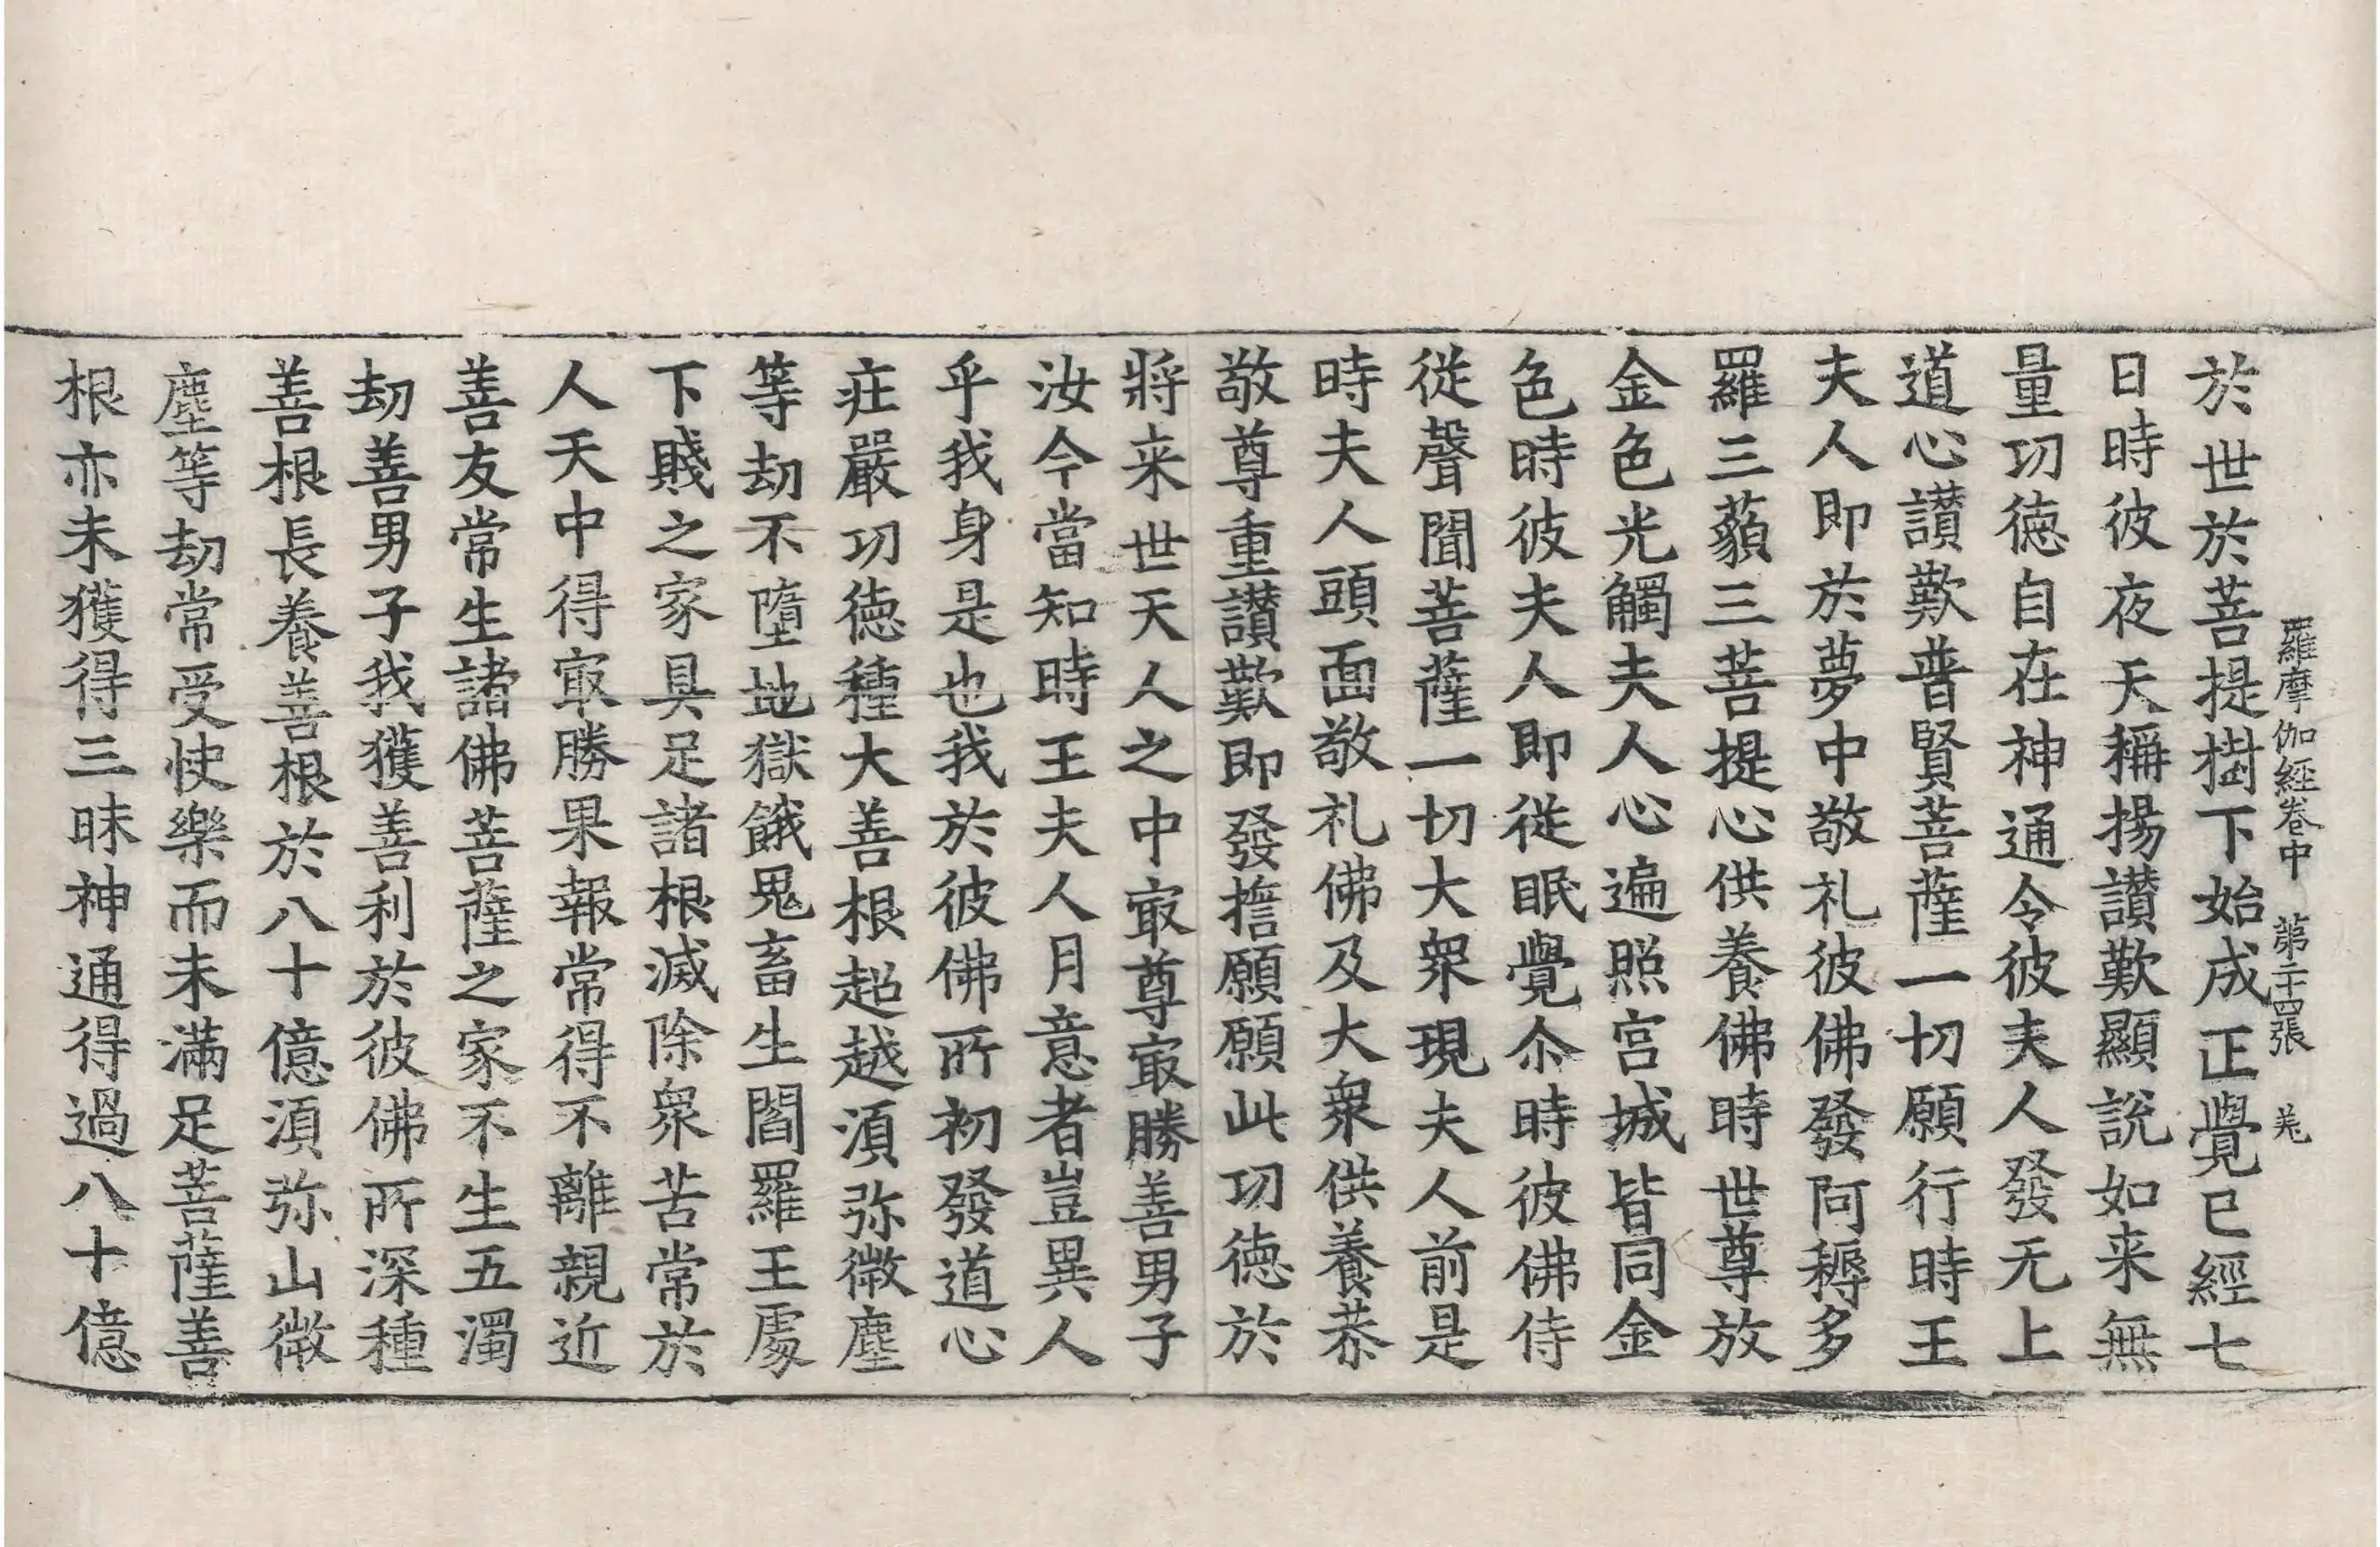 羅摩伽經卷中 第二十四張 羌
於世於菩提樹下始成正覺已經七
日時彼夜天稱揚讃歎顯說如来無
量功德自在神通令彼夫人發无上
道心讃歎普賢菩薩一切願行時王
夫人即於夢中敬礼彼佛發阿耨多
羅三藐三菩提心供養佛時世尊放
金色光觸夫人心遍照宮城皆同金
色時彼夫人即從眠覺尒時彼佛侍
從聲聞菩薩一切大衆現夫人前是
時夫人頭面敬礼佛及大衆供養恭
敬尊重讃歎即發誓願願此功德於
將来世天人之中㝡尊㝡勝善男子
汝今當知時王夫人月意者豈異人
乎我身是也我於彼佛所初發道心
莊嚴功德種大善根超越湏弥微塵
等劫不墮地獄餓鬼畜生閻羅王處
下賤之家具足諸根滅除衆苦常於
人天中得㝡勝果報常得不離親近
善友常生諸佛菩薩之家不生五濁
劫善男子我獲善利於彼佛所深種
善根長養善根於八十億湏弥山微
塵等劫常受快樂而未滿足菩薩善
根亦未獲得三昧神通得過八十億